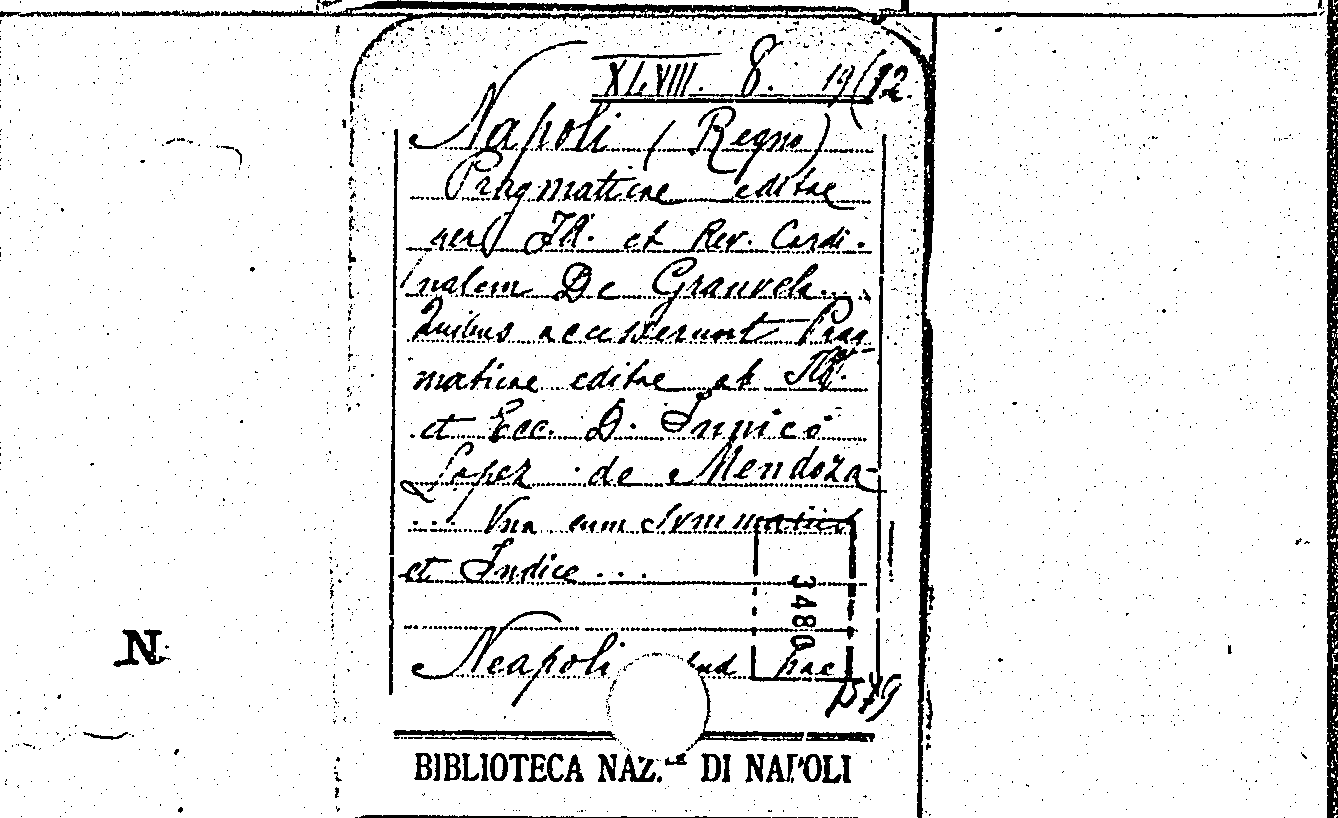 XLVIII. 8. 19(12.
Napoli (Regno)
Pragmaticae editae
per Ill. et Rev. Cardi.
nalem De Granvela...
Quibus accesserunt Prag
maticae editae ab Ill.
et Ecc. D. Innico
Lopez de Mendoza
... Una cum summariis
et Indice ...
3480
Neapoli
1579
BIBLIOTECA NAZ.LE DI NAPOLI
N